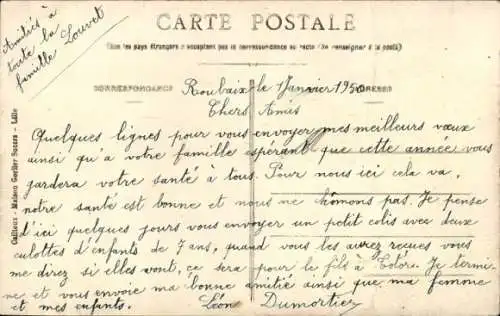 Amitiés à
toute la
famille Louvet
CARTE POSTALE
(Tous les pays étrangers n'acceptent pas la correspondance au recto (Se renseigner à la poste)
CORRESPONDANCE
ADRESSE
Cailteux - Maison Gustier Succrs - Lille
Roubaix le 1 Janvier 19
Chers Amis
Quelques lignes pour vous envoyer mes meilleurs vœux
ainsi qu'à votre famille espérant que cette année vous
gardera votre santé à tous. Pour nous ici cela va.
notre santé est bonne et nous ne chômons pas. Je pense
d'ici quelques jours vous envoyer un petit colis avec deux
culottes d'enfants de 7 ans, quand vous les aurez recues vous
me direz si elles vont, ce sera pour le fils à Totor. Je termi-
ne et vous envoie ma bonne amitié ainsi que ma femme
et mes enfants. Léon Dumortier